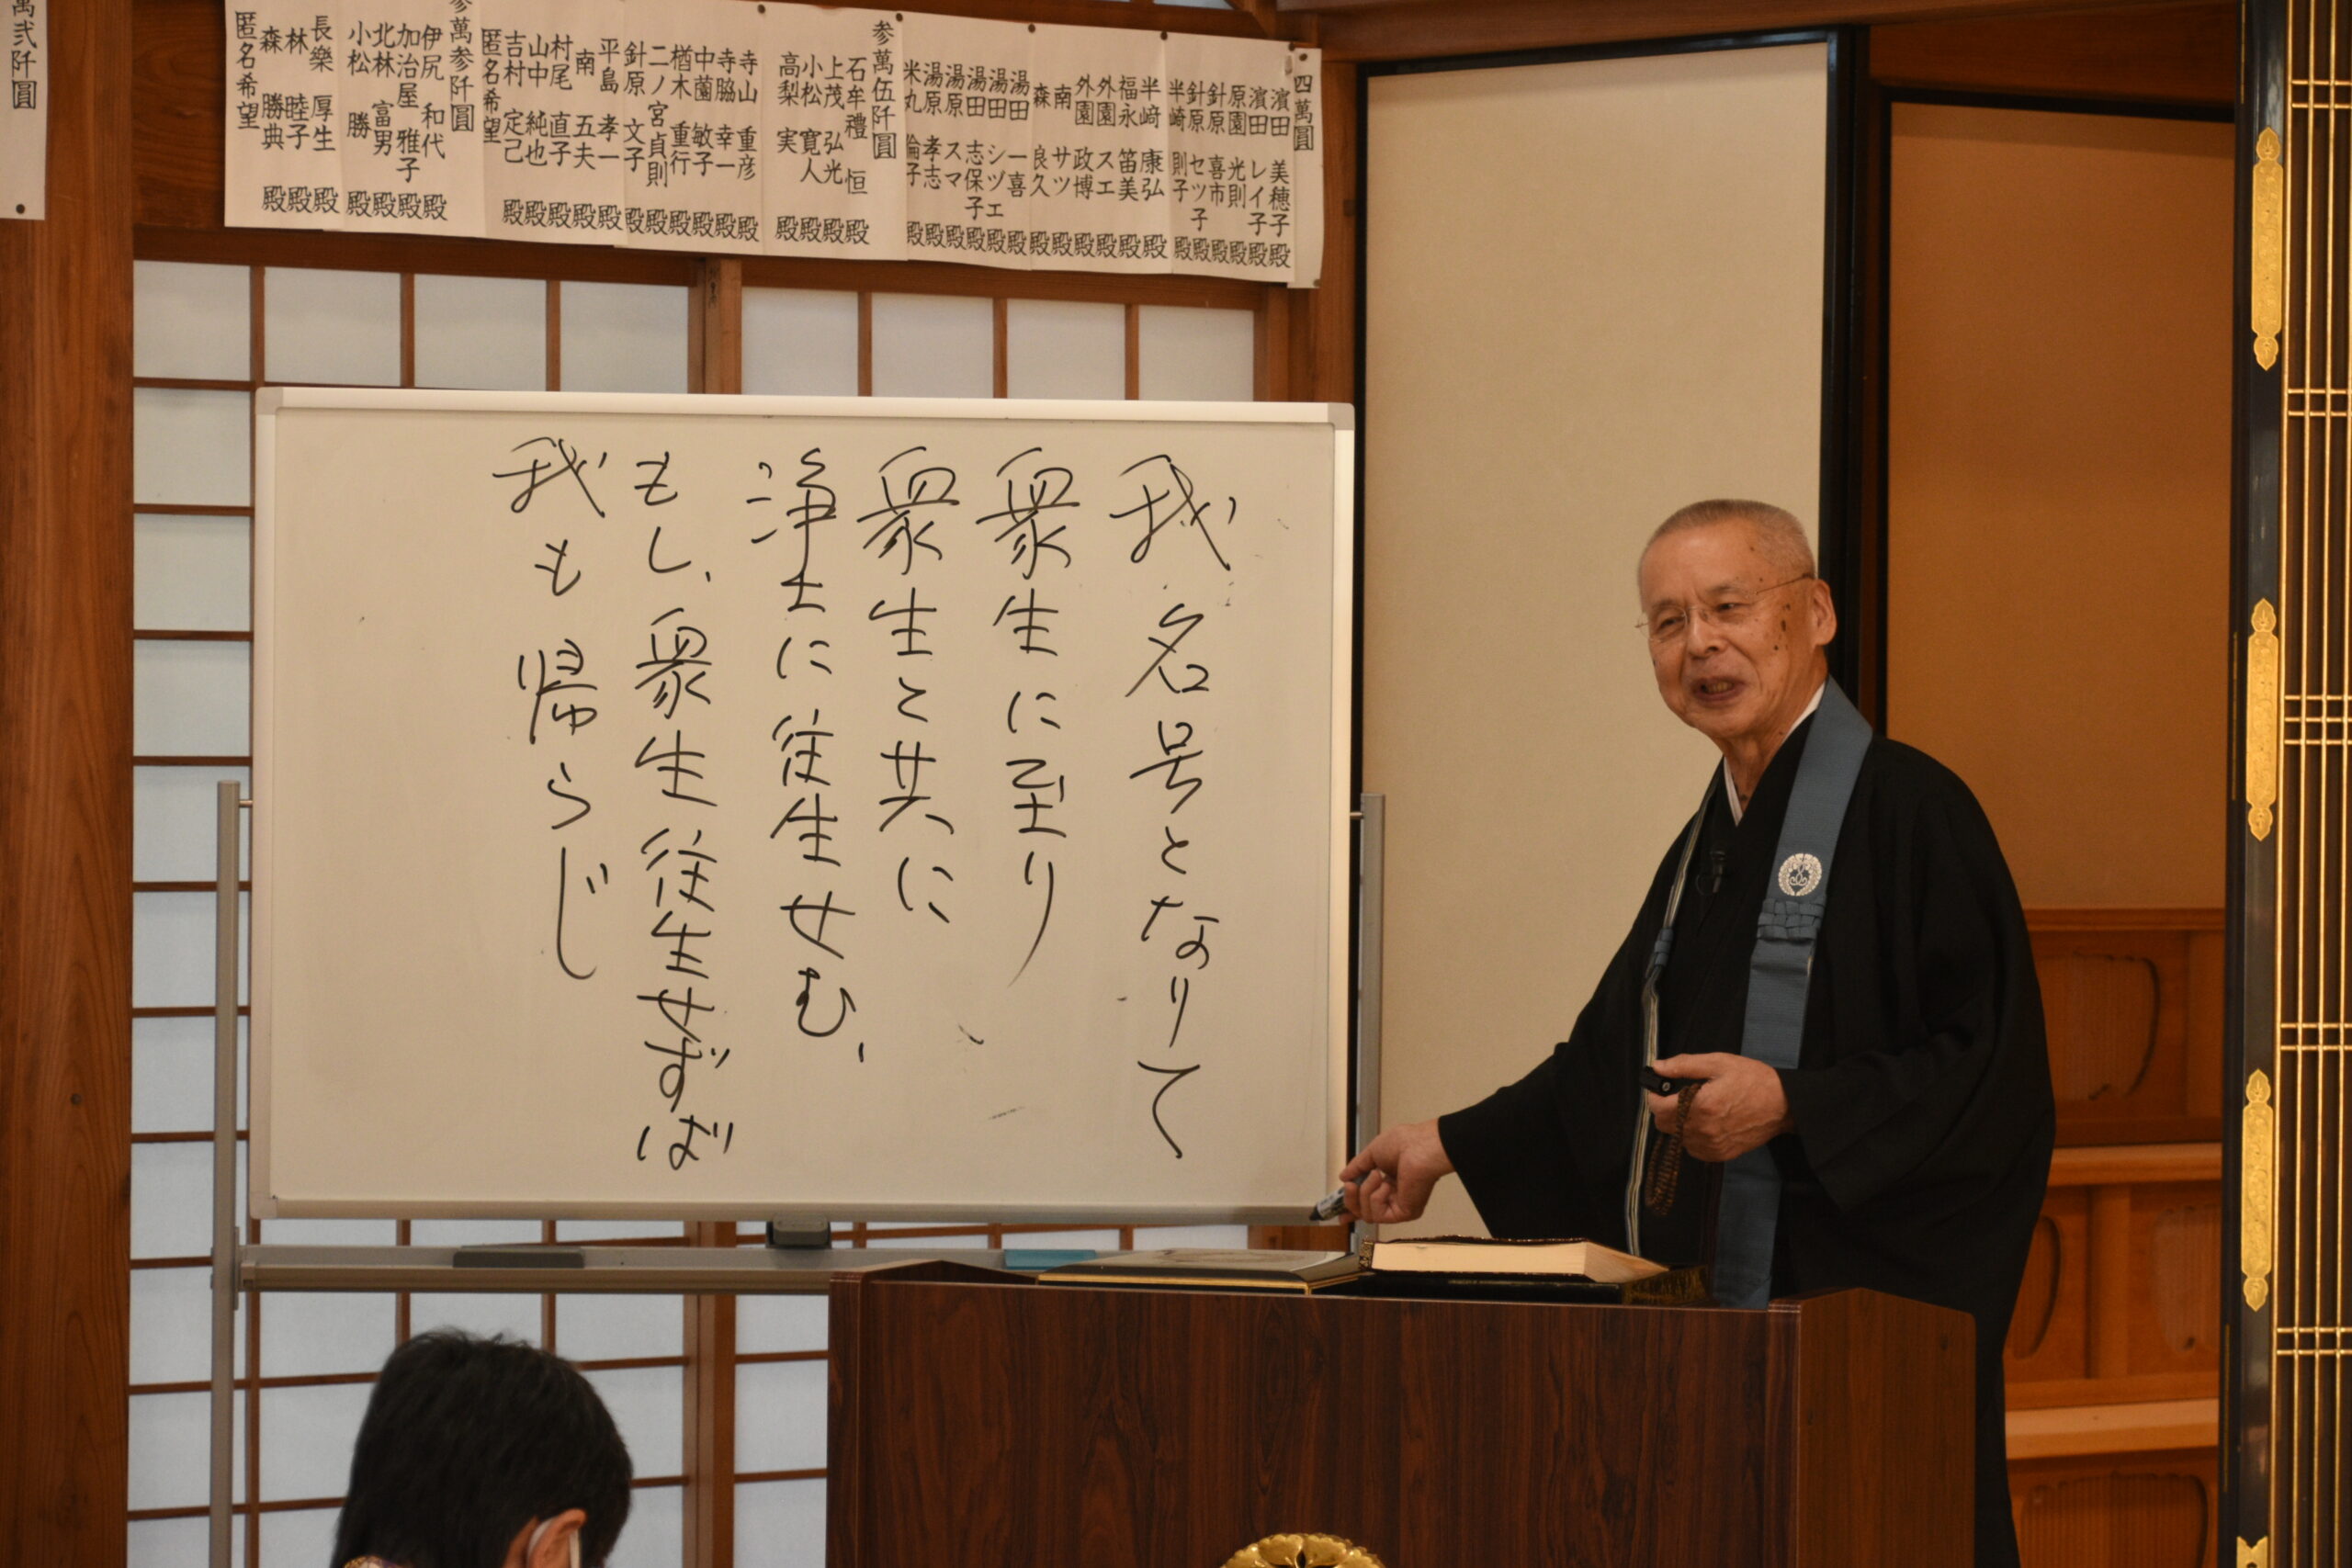 四萬圓
濱田 美穂子 殿
濱田 レイ子 殿
原園 光則 殿
針原 喜市 殿
針原 セツ子 殿
半崎 則子 殿
半﨑 康弘 殿
福永 笛美 殿
外園 スエ 殿
外園 政博 殿
南 サツ 殿
森 良久 殿
湯田 一喜 殿
湯田 シヅエ 殿
湯田 志保子 殿
湯原 スマ 殿
湯原 孝志 殿
米丸 倫子 殿
参萬伍阡圓
石牟禮 恒 殿
上茂 弘光 殿
小松 寛人 殿
高梨 実 殿
寺山 重彦 殿
寺脇 幸一 殿
中薗 敏子 殿
楢木 重行 殿
二ノ宮 貞則 殿
針原 文子 殿
平島 孝一 殿
南 五夫 殿
村尾 直子 殿
山中 純也 殿
吉村 定己 殿
匿名希望
参萬参阡圓
伊尻 和代 殿
加治屋 雅子 殿
北林 富男 殿
小松 勝 殿
長樂 厚生 殿
林 睦子 殿
森 勝典 殿
匿名希望
萬弐阡圓
我 名号となりて
衆生に至り
衆生と共に
浄土に往生せむ、
もし、衆生往生せずば
我も帰らじ